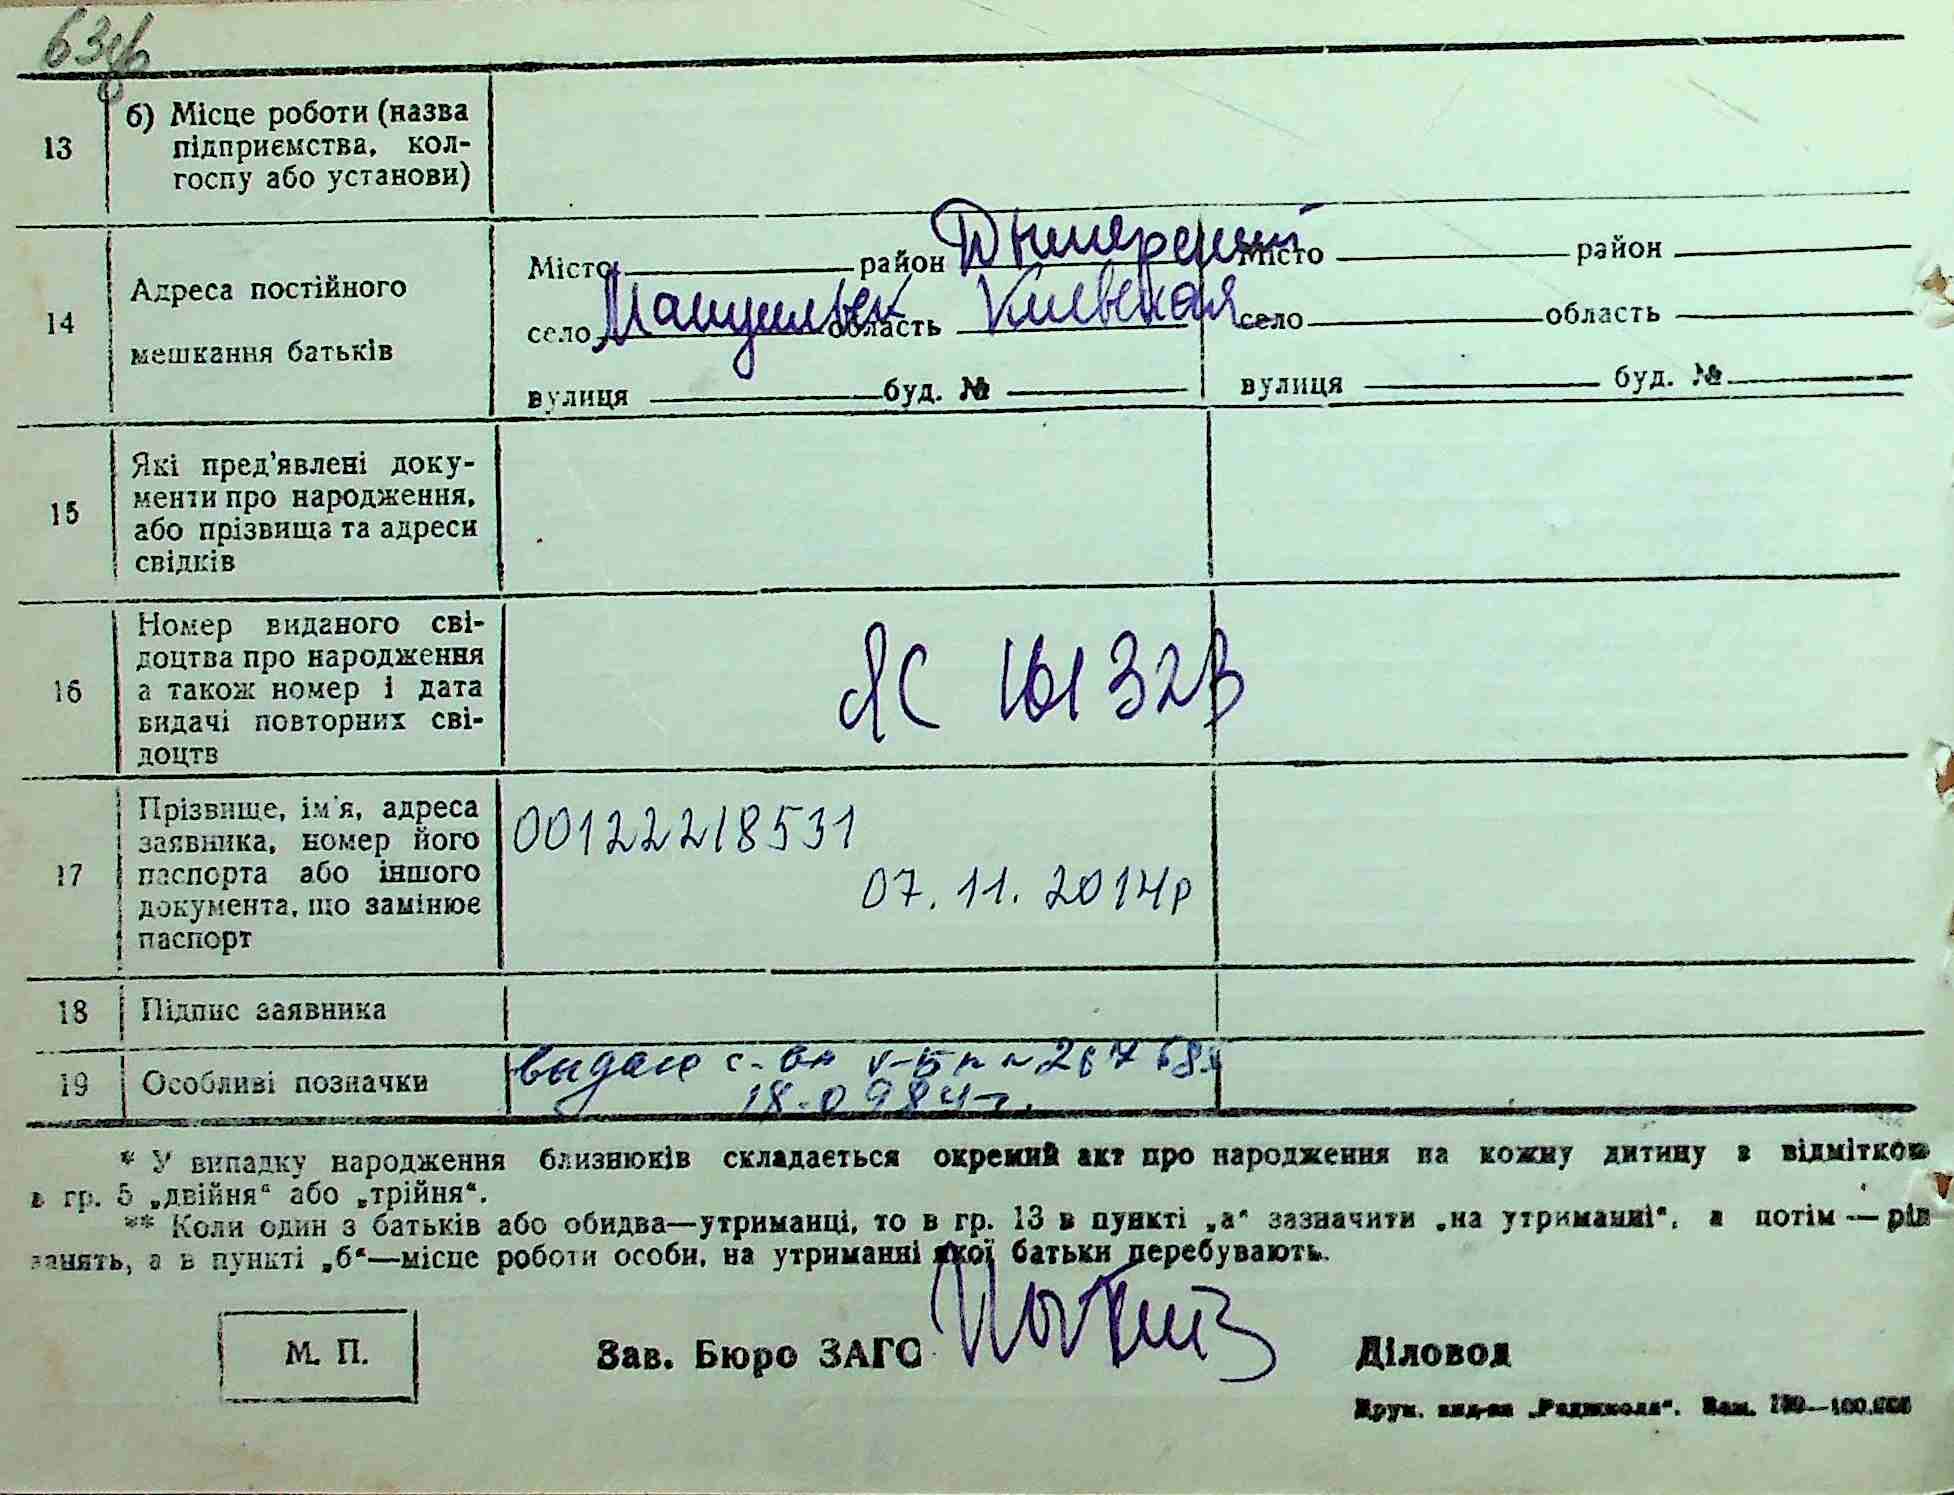 63
13
б) Місце роботи (назва
підприємства, кол-
госпу або установи)
14
Адреса постійного
мешкання батьків
Місто район Дымерский
село область Киевская
вулиця буд. №
Місто район
село область
вулиця буд. №
15
Які пред’явлені доку-
менти про народження,
або прізвища та адреси
свідків
16
Номер виданого сві-
доцтва про народження
а також номер і дата
видачі повторних сві-
доцтв
ЯС
17
Прізвище, ім’я, адреса
заявника, номер його
паспорта або іншого
документа, що замінює
паспорт
00122218531
07.11.2014р
18
Підпис заявника
19
Особливі позначки
выдано с-во V-БК №
18.09.84г.
* У випадку народження близнюків складається окремий акт про народження на кожну дитину з відміткою
в гр. 5 „двійня“ або „трійня“.
** Коли один з батьків або обидва—утриманці, то в гр. 13 в пункті „а“ зазначити „на утриманні“, а потім — рід
занять, а в пункті „б“—місце роботи особи, на утриманні якої батьки перебувають.
М. П.
Зав. Бюро ЗАГС
Діловод
Друк. вид-ва „Радшкола“. Зам.